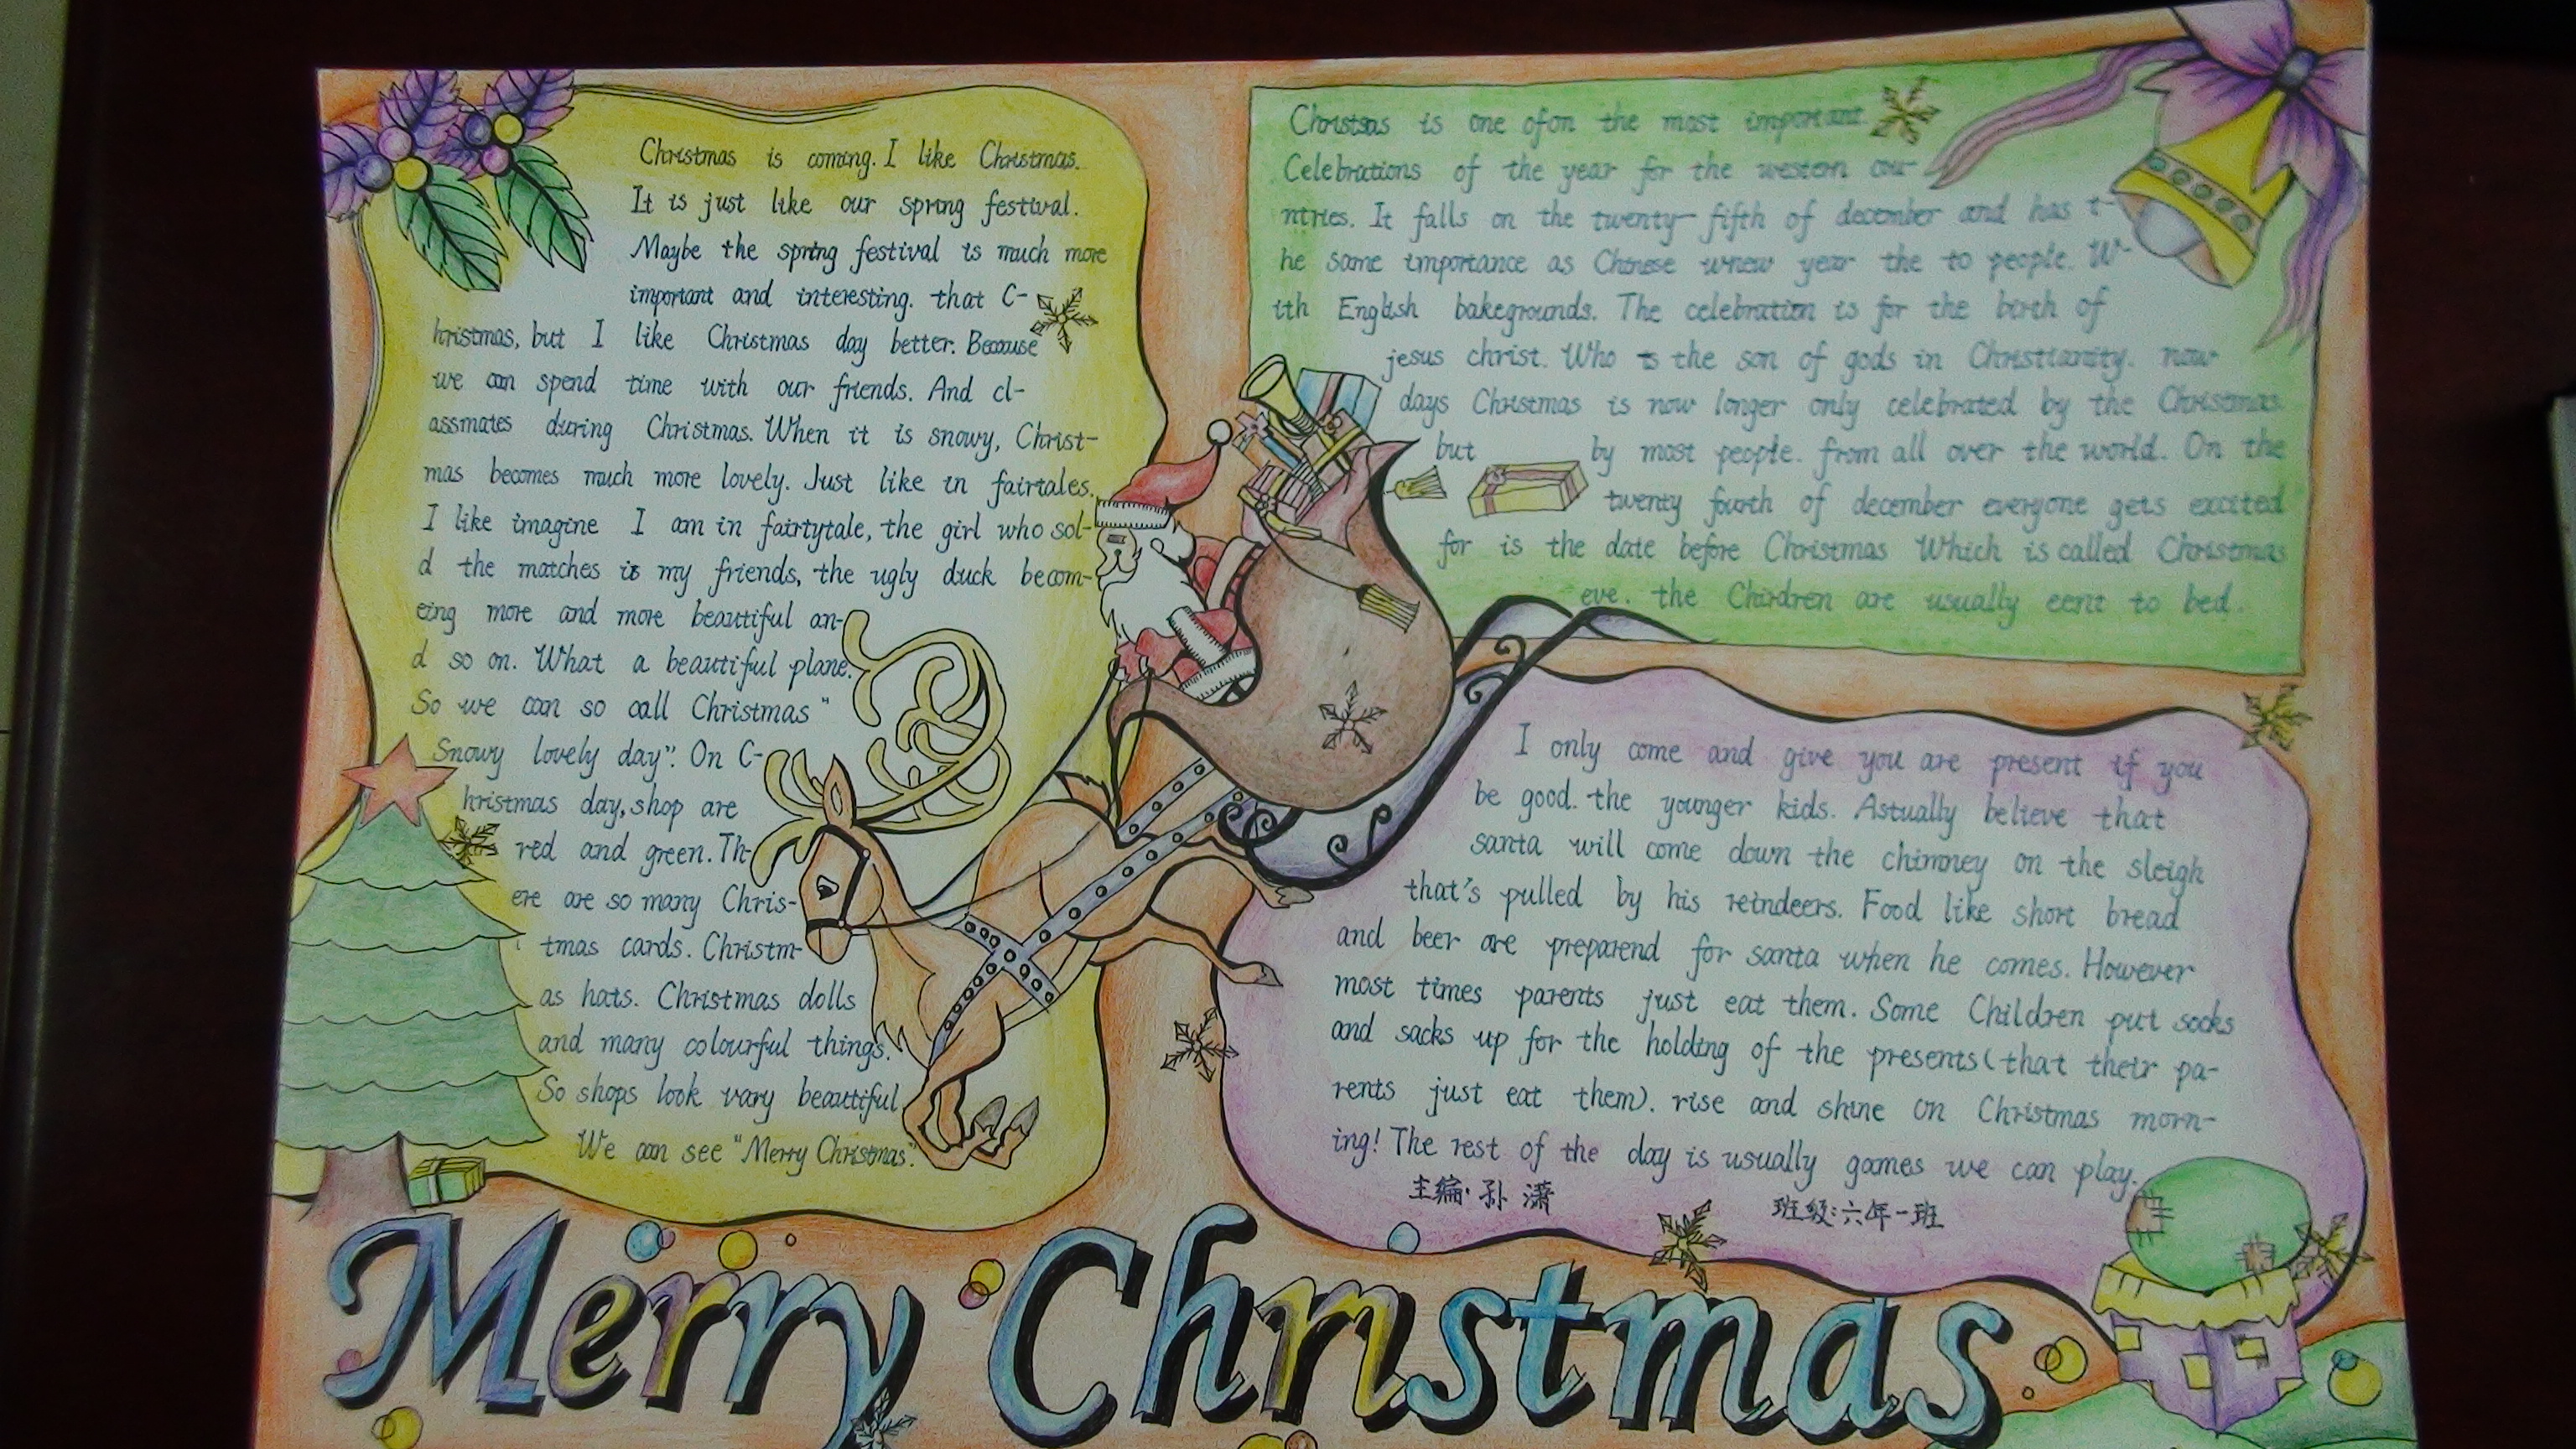 Christmas is coming. I like Christmas.
It is just like our spring festival.
Maybe the spring festival is much more
important and interesting. that C-
hristmas, but I like Christmas day better. Because
we can spend time with our friends. And cl-
assmates during Christmas. When it is snowy, Christ-
mas becomes much more lovely. Just like in fairtales.
I like imagine I am in fairtytale, the girl who sol-
d the matches is my friends, the ugly duck becom-
eing more and more beautiful an-
d so on. What a beautiful plane.
So we can so call Christmas "
Snowy lovely day". On C-
hristmas day, shop are
red and green. Th-
ere are so many Chris-
tmas cards. Christm-
as hats. Christmas dolls
and many colourful things.
So shops look vary beautiful
We can see "Merry Christmas".
Christsas is one ofon the most important
Celebrations of the year for the western cou-
ntries. It falls on the twenty-fifth of december and has t-
he same importance as Chinese wnew year the to people. W-
ith English bakegrounds. The celebration is for the birth of
jesus christ. Who is the son of gods in Christianity. now
days Christmas is now longer only celebrated by the Christmas
but by most people. from all over the world. On the
twenty fourth of december everyone gets excited
for is the date before Christmas Which is called Christmas
eve. the Chirdren are usually eent to bed.
I only come and give you are present if you
be good. the younger kids. Astually believe that
santa will come down the chimney on the sleigh
that's pulled by his reindeers. Food like short bread
and beer are preparend for santa when he comes. However
most times parents just eat them. Some Children put socks
and sacks up for the holding of the presents (that their pa-
rents just eat them). rise and shine on Christmas morn-
ing! The rest of the day is usually games we can play.
主编: 孙 潇 班级: 六年一班
Merry Christmas